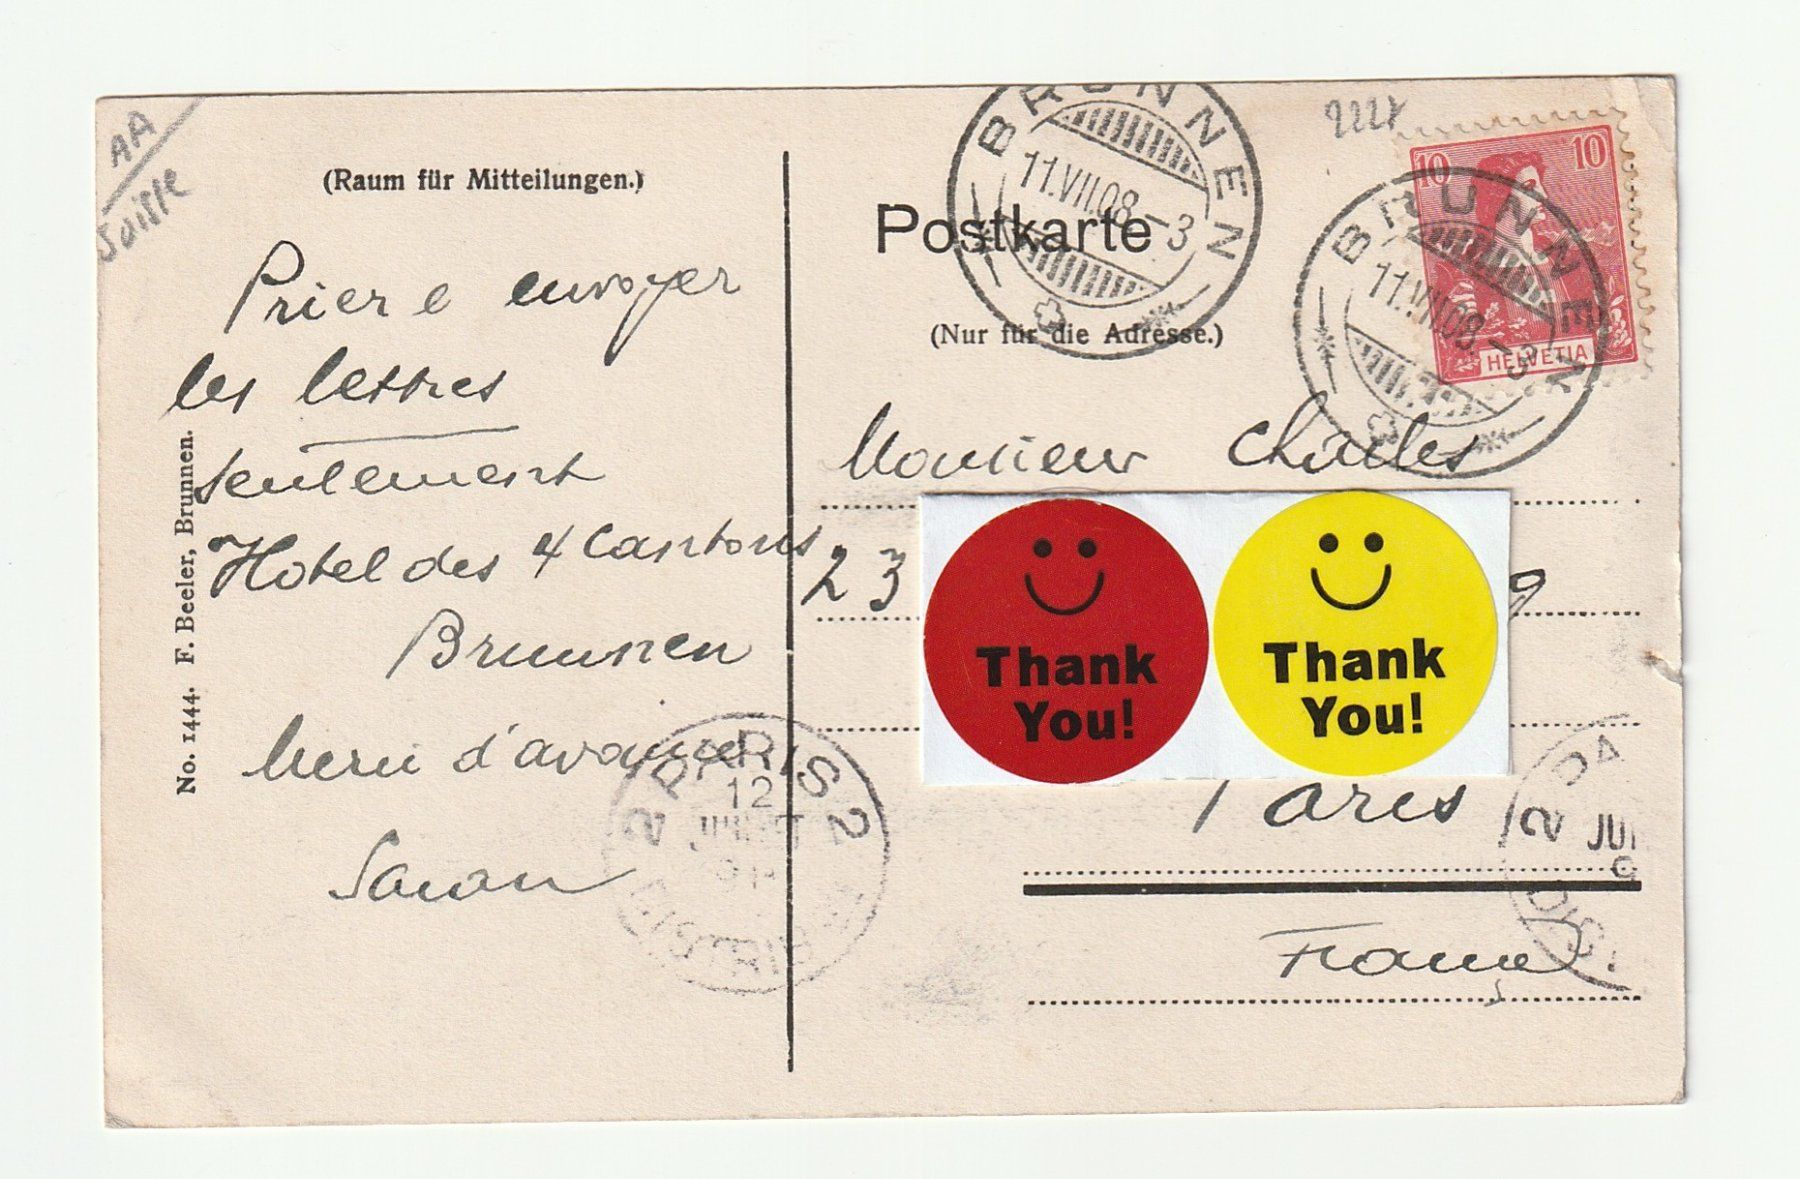 AA
Suisse
(Raum für Mitteilungen.)
Priere envoyer
les lettres
seulement
Hotel des 4 Cantons
Brunnen
Merci d'avance
No. 1444. F. Beeler, Brunnen.
Postkarte
(Nur für die Adresse.)
BRUNNEN
11.VII.08-3
10 10
HELVETIA
BRUNNEN
11.VII.08-3
Monsieur Charles
23
9
Thank
You!
Thank
You!
Paris
France
2 PARIS 2
12
JUILLET
2 PA
JUI